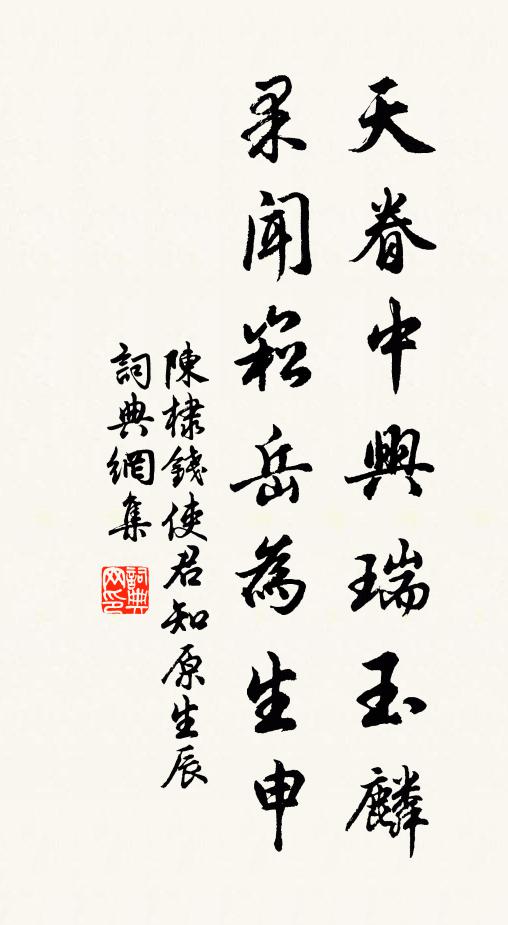 天眷中興瑞玉麟
果聞嵩岳為生申
陳棣錢使君知原生辰
詞典網集
詞典
网印